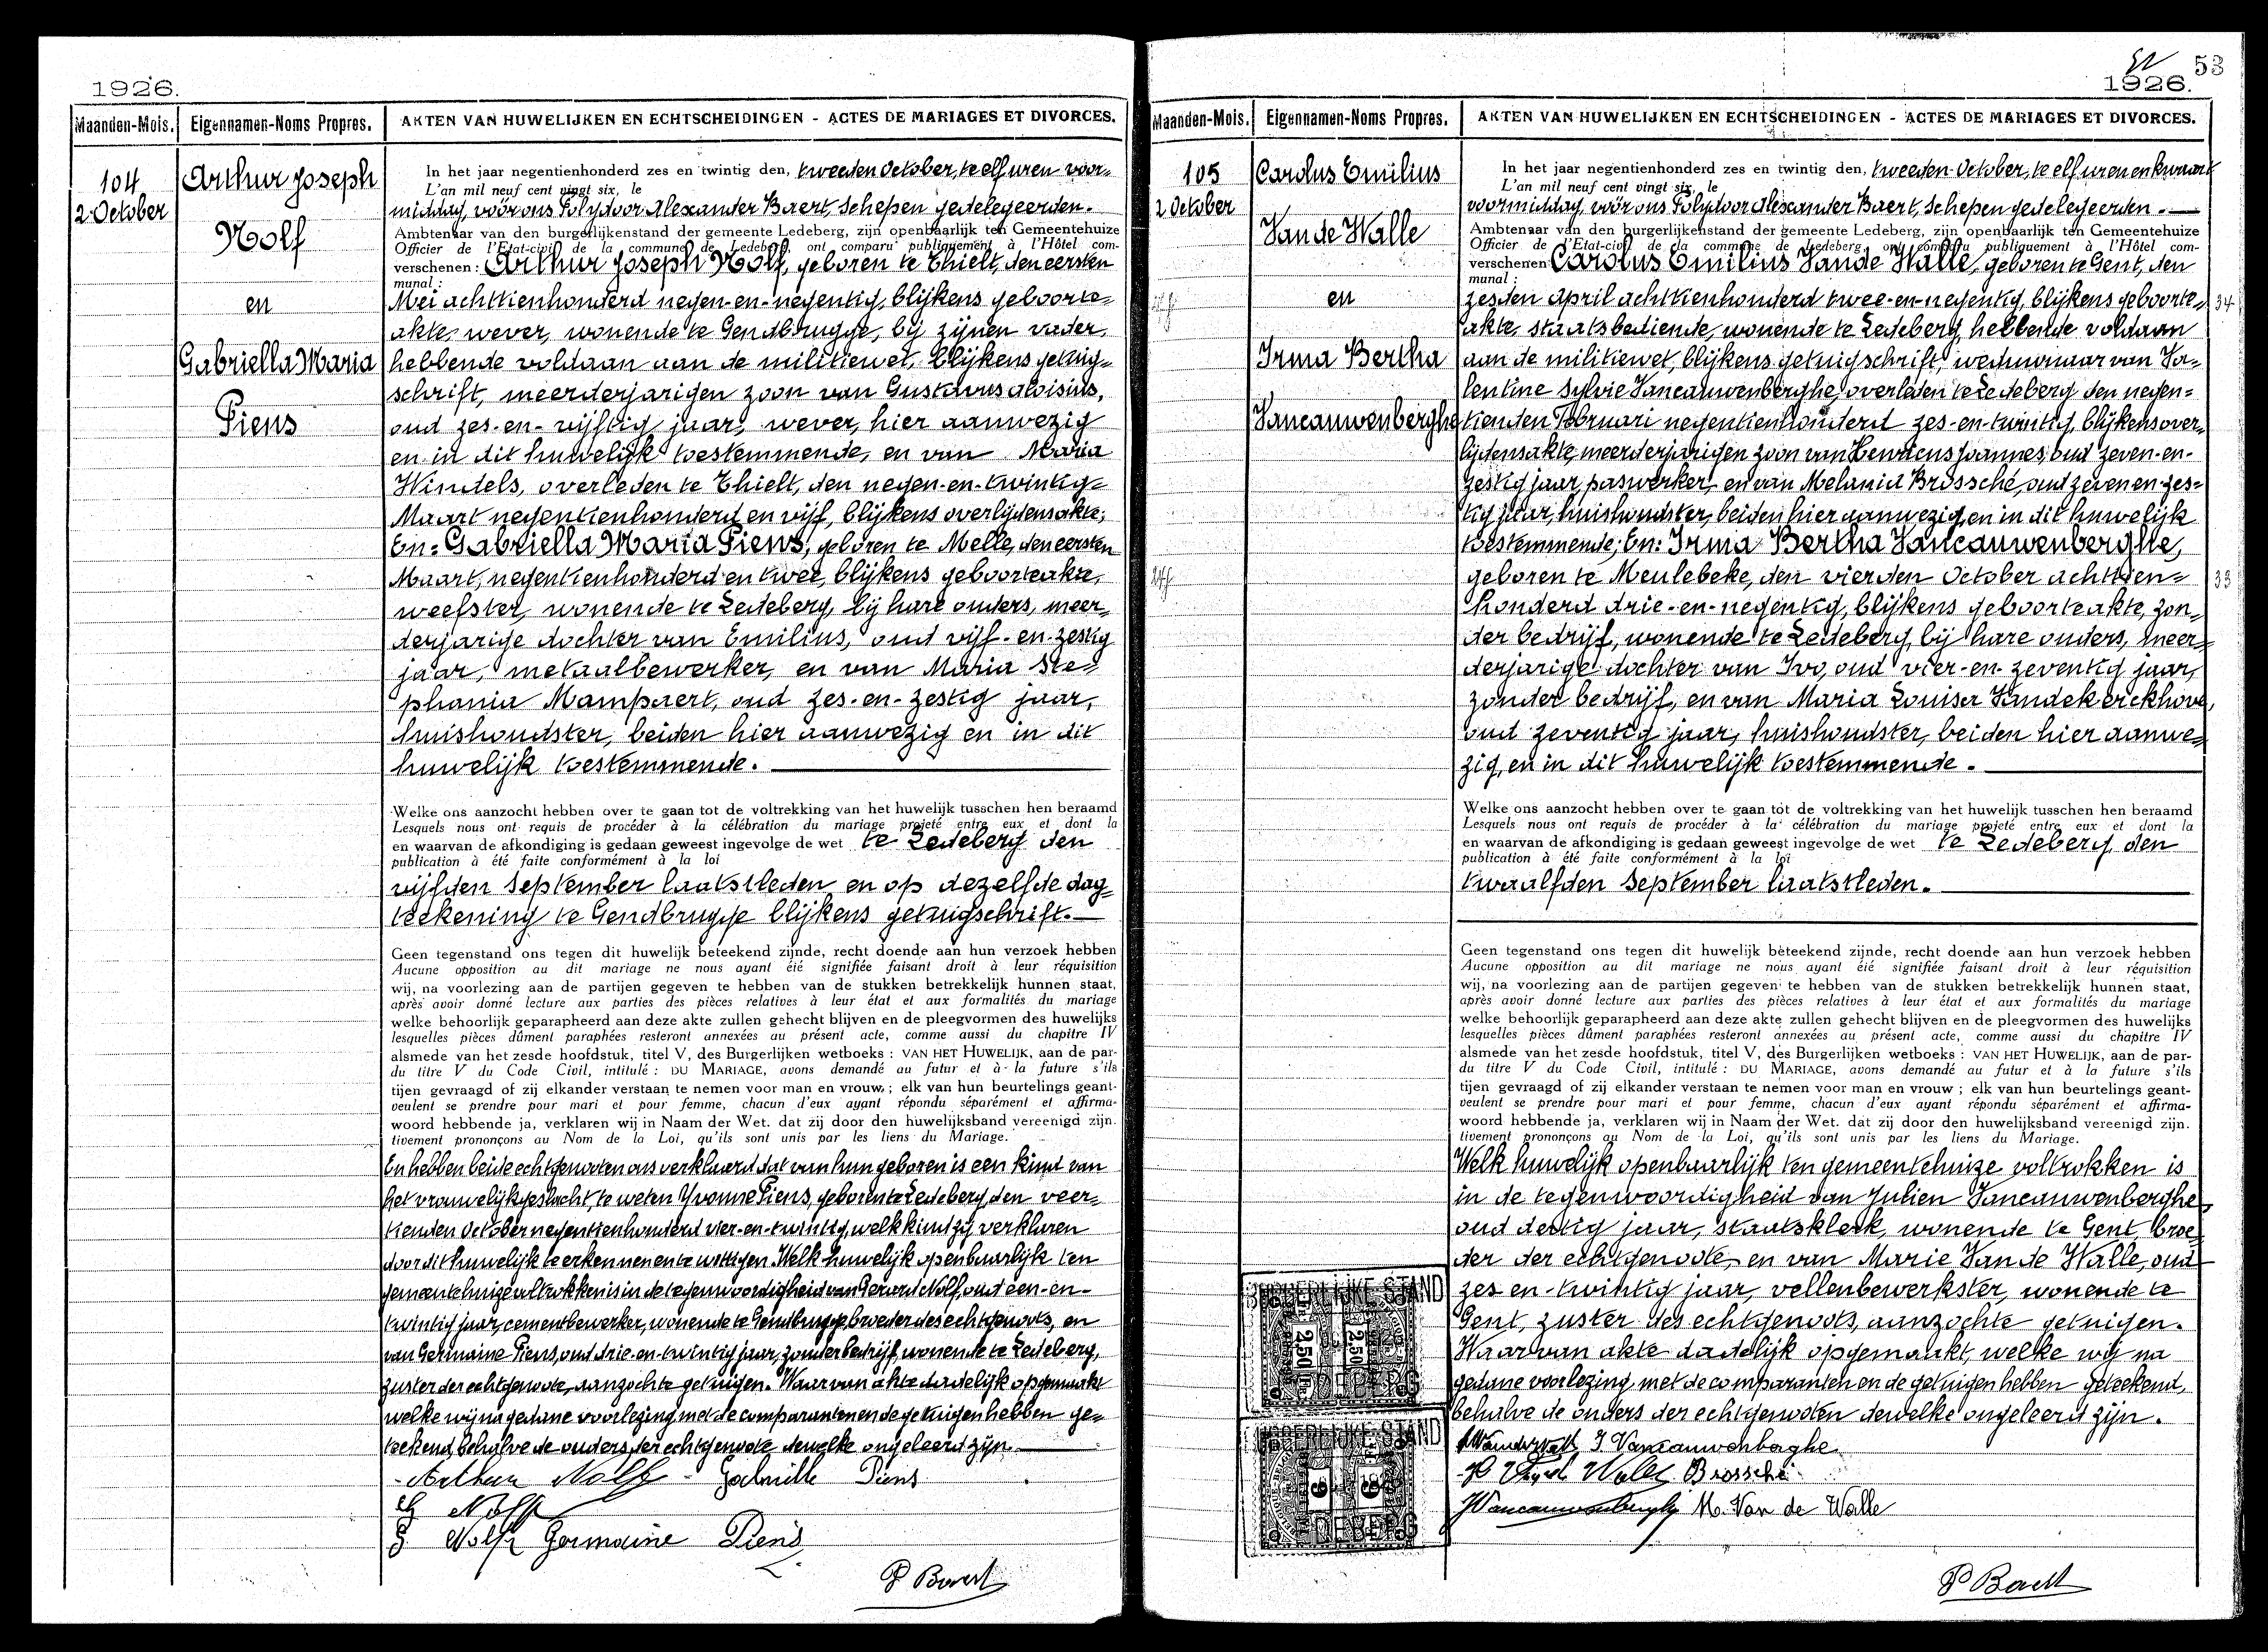 1926.
Maanden-Mois.
Eigennamen-Noms Propres.
AKTEN VAN HUWELIJKEN EN ECHTSCHEIDINGEN - ACTES DE MARIAGES ET DIVORCES.
104
2 October
Arthur Joseph
Nolf
en
Gabriella Maria
Piens
In het jaar negentienhonderd zes en twintig den, tweeden October, te elf uren voor=
L'an mil neuf cent vingt six, le
middag, vóór ons Polydoor Alexander Baert, Schepen gedelegeerden.
Ambtenaar van den burgerlijkenstand der gemeente Ledeberg, zijn openbaarlijk ten Gemeentehuize
Officier de l'Etat-civil de la commune de Ledeberg, ont comparu publiquement à l'Hôtel com-
verschenen: Arthur Joseph Nolf, geboren te Thielt, den eersten
munal :
Mei achttienhonderd negen-en-negentig, blijkens geboorte=
akte, wever, wonende te Gendbrugge, bij zijnen vader,
hebbende voldaan aan de militiewet, blijkens getuig=
schrift, meerderjarigen zoon van Gustavus Aloisius,
oud zes-en-vijftig jaar, wever, hier aanwezig
en in dit huwelijk toestemmende, en van Maria
Windels, overleden te Thielt, den negen-en-twintig=
Maart negentienhonderd en vijf, blijkens overlijdensakte;
En: Gabriella Maria Piens, geboren te Melle, den eersten
Maart, negentienhonderd en twee, blijkens geboorteakte,
weefster, wonende te Ledeberg, bij hare ouders, meer=
derjarige dochter van Emilius, oud vijf-en-zestig
jaar, metaalbewerker, en van Maria Ste=
phania Mampaert, oud zes-en-zestig jaar,
huishoudster, beiden hier aanwezig en in dit
huwelijk toestemmende.
Welke ons aanzocht hebben over te gaan tot de voltrekking van het huwelijk tusschen hen beraamd
Lesquels nous ont requis de procéder à la célébration du mariage projeté entre eux et dont la
en waarvan de afkondiging is gedaan geweest ingevolge de wet te Ledeberg den
publication à été faite conformément à la loi
vijfden September laatstleden en op dezelfde dag=
teekening te Gendbrugge blijkens getuigschrift.
Geen tegenstand ons tegen dit huwelijk beteekend zijnde, recht doende aan hun verzoek hebben
Aucune opposition au dit mariage ne nous ayant éié signifiée faisant droit à leur réquisition
wij, na voorlezing aan de partijen gegeven te hebben van de stukken betrekkelijk hunnen staat,
après avoir donné lecture aux parties des pièces relatives à leur état et aux formalités du mariage
welke behoorlijk geparapheerd aan deze akte zullen gehecht blijven en de pleegvormen des huwelijks
lesquelles pièces dûment paraphées resteront annexées au présent acte, comme aussi du chapitre IV
alsmede van het zesde hoofdstuk, titel V, des Burgerlijken wetboeks : VAN HET HUWELIJK, aan de par-
du titre V du Code Civil, intitulé : DU MARIAGE, avons demandé au futur et à la future s'ils
tijen gevraagd of zij elkander verstaan te nemen voor man en vrouw ; elk van hun beurtelings geant-
veulent se prendre pour mari et pour femme, chacun d'eux ayant répondu séparément et affirma-
woord hebbende ja, verklaren wij in Naam der Wet. dat zij door den huwelijksband vereenigd zijn.
tivement prononçons au Nom de la Loi, qu'ils sont unis par les liens du Mariage.
En hebben beide echtgenooten ons verklaard dat van hun geboren is een kind van
het vrouwelijk geslacht, te weten Yvonne Piens, geboren te Ledeberg, den veer=
tienden October negentienhonderd vier-en-twintig, welk kind zij verklaren
door dit huwelijk te erkennen en te wettigen. Welk huwelijk openbaarlijk ten
gemeentehuize voltrokken is in de tegenwoordigheid van Gerard Nolf, oud een-en-
twintig jaar, cementbewerker, wonende te Gendbrugge, broeder des echtgenoots, en
van Germaine Piens, oud drie-en-twintig jaar, zonder bedrijf, wonende te Ledeberg,
zuster der echtgenoote, aanzochte getuigen. Waarvan akte dadelijk opgemaakt
welke wij na gedane voorlezing met de comparanten en de getuigen hebben ge=
teekend, behalve de ouders der echtgenoote, dewelke ongeleerd zijn.
Arthur Nolf Gabrielle Piens
G Nolf
G Nolf Germaine Piens
P Baert
53
1926.
Maanden-Mois.
Eigennamen-Noms Propres.
AKTEN VAN HUWELIJKEN EN ECHTSCHEIDINGEN - ACTES DE MARIAGES ET DIVORCES.
105
2 October
Carolus Emilius
Van de Walle
en
Irma Bertha
Vancauwenberghe
34
33
In het jaar negentienhonderd zes en twintig den, tweeden October, te elf uren en kwaart
L'an mil neuf cent vingt six, le
voormiddag, vóór ons Polydoor Alexander Baert, Schepen gedelegeerden.
Ambtenaar van den burgerlijkenstand der gemeente Ledeberg, zijn openbaarlijk ten Gemeentehuize
Officier de l'Etat-civil de la commune de Ledeberg, ont comparu publiquement à l'Hôtel com-
verschenen Carolus Emilius Van de Walle, geboren te Gent, den
munal :
zesden April achttienhonderd twee-en-negentig, blijkens geboorte=
akte, staatsbediende, wonende te Ledeberg, hebbende voldaan
aan de militiewet, blijkens getuigschrift, weduwnaar van Va=
lentine Sylvie Vancauwenberghe, overleden te Ledeberg den negen=
tienden Februari negentienhonderd zes-en-twintig, blijkens over=
lijdensakte, meerderjarigen zoon van Henricus Joannes, oud zeven-en-
zestig jaar, paswerker, en van Melania Brossché, oud zeven en zes=
tig jaar, huishoudster, beiden hier aanwezig, en in dit huwelijk
toestemmende; En: Irma Bertha Vancauwenberghe,
geboren te Meulebeke, den vierden October achttien=
honderd drie-en-negentig, blijkens geboorteakte, zon=
der bedrijf, wonende te Ledeberg, bij hare ouders, meer=
derjarige dochter van Ivo, oud vier-en-zeventig jaar,
zonder bedrijf, en van Maria Louisa Vandekerckhove,
oud zeventig jaar, huishoudster, beiden hier aanwe=
zig, en in dit huwelijk toestemmende.
Welke ons aanzocht hebben over te gaan tot de voltrekking van het huwelijk tusschen hen beraamd
Lesquels nous ont requis de procéder à la célébration du mariage projeté entre eux et dont la
en waarvan de afkondiging is gedaan geweest ingevolge de wet te Ledeberg, den
publication à été faite conformément à la loi
twaalfden September laatstleden.
Geen tegenstand ons tegen dit huwelijk beteekend zijnde, recht doende aan hun verzoek hebben
Aucune opposition au dit mariage ne nous ayant éié signifiée faisant droit à leur réquisition
wij, na voorlezing aan de partijen gegeven te hebben van de stukken betrekkelijk hunnen staat,
après avoir donné lecture aux parties des pièces relatives à leur état et aux formalités du mariage
welke behoorlijk geparapheerd aan deze akte zullen gehecht blijven en de pleegvormen des huwelijks
lesquelles pièces dûment paraphées resteront annexées au présent acte, comme aussi du chapitre IV
alsmede van het zesde hoofdstuk, titel V, des Burgerlijken wetboeks : VAN HET HUWELIJK, aan de par-
du titre V du Code Civil, intitulé : DU MARIAGE, avons demandé au futur et à la future s'ils
tijen gevraagd of zij elkander verstaan te nemen voor man en vrouw ; elk van hun beurtelings geant-
veulent se prendre pour mari et pour femme, chacun d'eux ayant répondu séparément et affirma-
woord hebbende ja, verklaren wij in Naam der Wet. dat zij door den huwelijksband vereenigd zijn.
tivement prononçons au Nom de la Loi, qu'ils sont unis par les liens du Mariage.
Welk huwelijk openbaarlijk ten gemeentehuize voltrokken is
in de tegenwoordigheid van Julien Vancauwenberghe
oud dertig jaar, staatsklerk, wonende te Gent, broe=
der der echtgenoote, en van Marie Van de Walle, oud
zes en-twintig jaar, vellenbewerkster, wonende te
Gent, zuster des echtgenoots, aanzochte getuigen.
Waarvan akte dadelijk opgemaakt, welke wij na
gedane voorlezing, met de comparanten en de getuigen hebben geteekend,
behalve de ouders der echtgenooten dewelke ongeleerd zijn.
I. Vancauwenberghe
Brossché
JVancauwenberghe M. Van de Walle
P Baert
BURGERLIJKE STAND
2.50 Fr. 2.50
LEDEBERG
BURGERLIJKE STAND
9 9
LEDEBERG